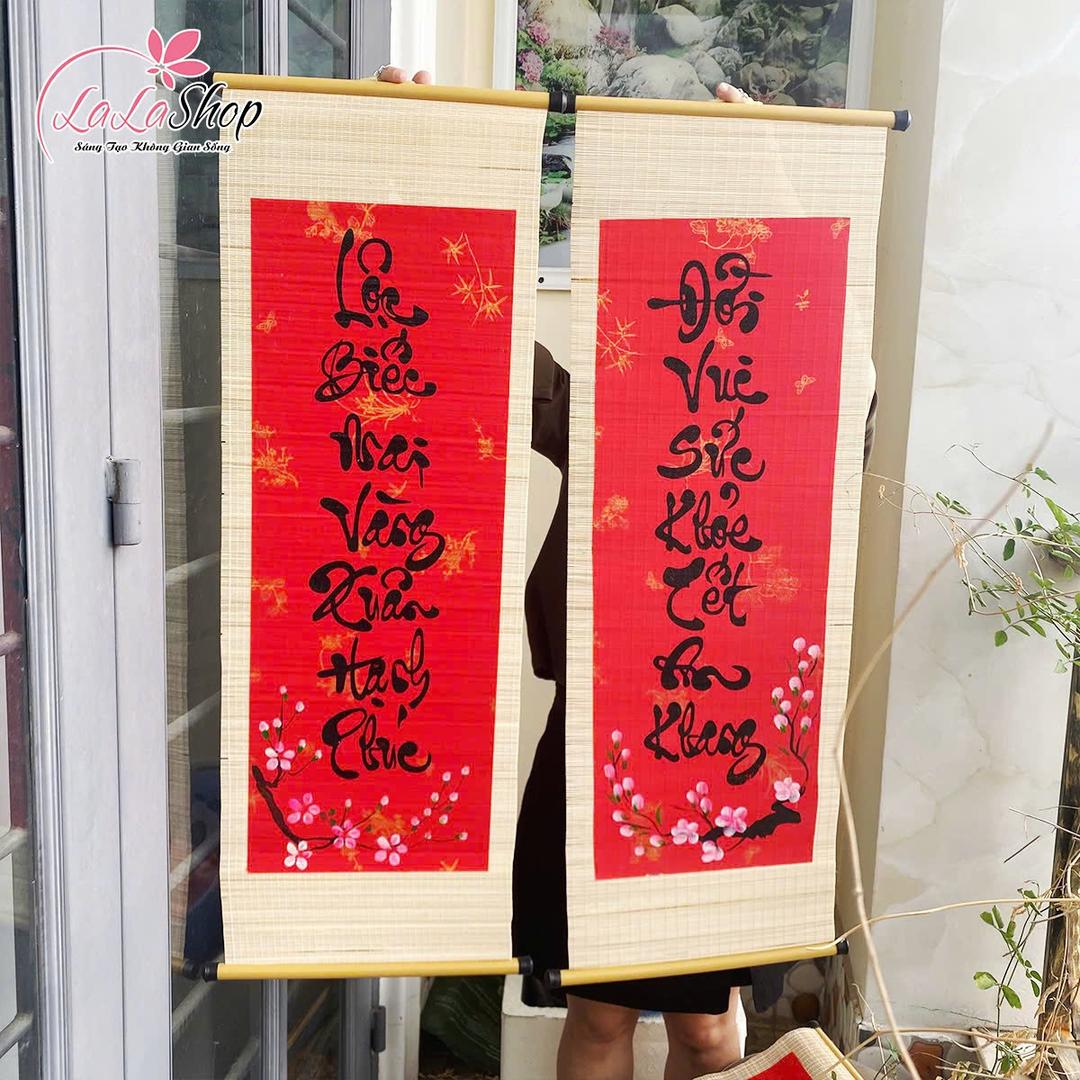 LaLaShop
Sáng Tạo Không Gian Sống
Lộc
Biếc
Mai
Vàng
Xuân
Hạnh
Phúc
Đời
Vui
Sức
Khỏe
Tết
An
Khang